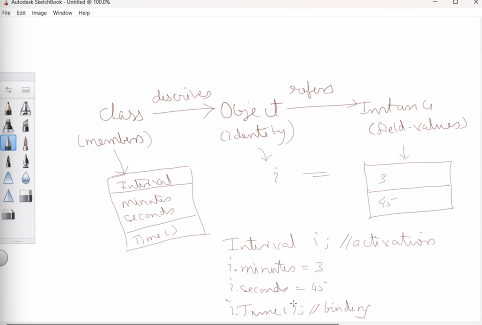 Autodesk SketchBook - Untitled @ 100.0%
File Edit Image Window Help
describes refers
Class Object Instance
(members) (identity) (field-values)
Interval
minutes
seconds
Time()
i =
3
45
Interval i; //activation
i.minutes = 3
i.seconds = 45
i.Time(); //binding